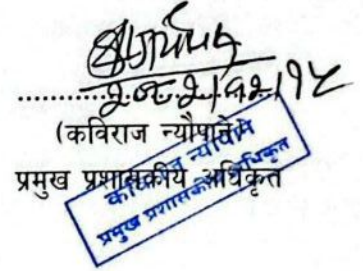 (कविराज न्यौपाने)
प्रमुख प्रशासकीय अधिकृत
कविराज न्यौपाने
प्रमुख प्रशासकीय अधिकृत